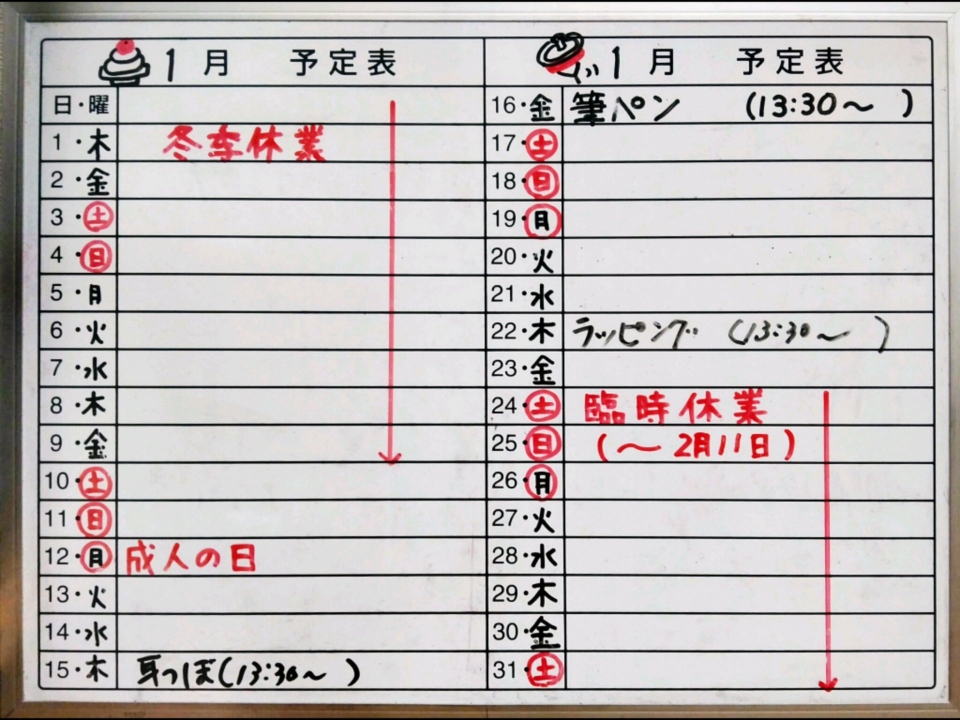 1月 予定表
日・曜
1・木 冬季休業
2・金
3・土
4・日
5・月
6・火
7・水
8・木
9・金
10・土
11・日
12・月 成人の日
13・火
14・水
15・木 耳つぼ(13:30～ )
1月 予定表
16・金 筆ペン (13:30～ )
17・土
18・日
19・月
20・火
21・水
22・木 ラッピング (13:30～ )
23・金
24・土 臨時休業
25・日 (～2月11日)
26・月
27・火
28・水
29・木
30・金
31・土